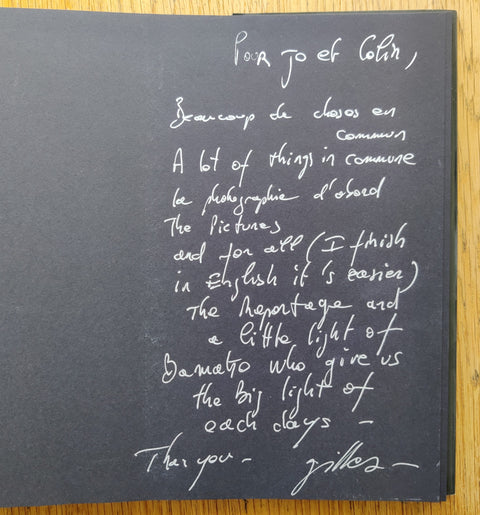 Pour Jo et Colin,
Beaucoup de choses en
commun
A lot of things in commune
la photographie d'abord
The Pictures
and for all (I finish
in English it's easier)
The Reportage and
a little light of
Bamako who give us
the Big light of
each days –
Than you –
gilles –